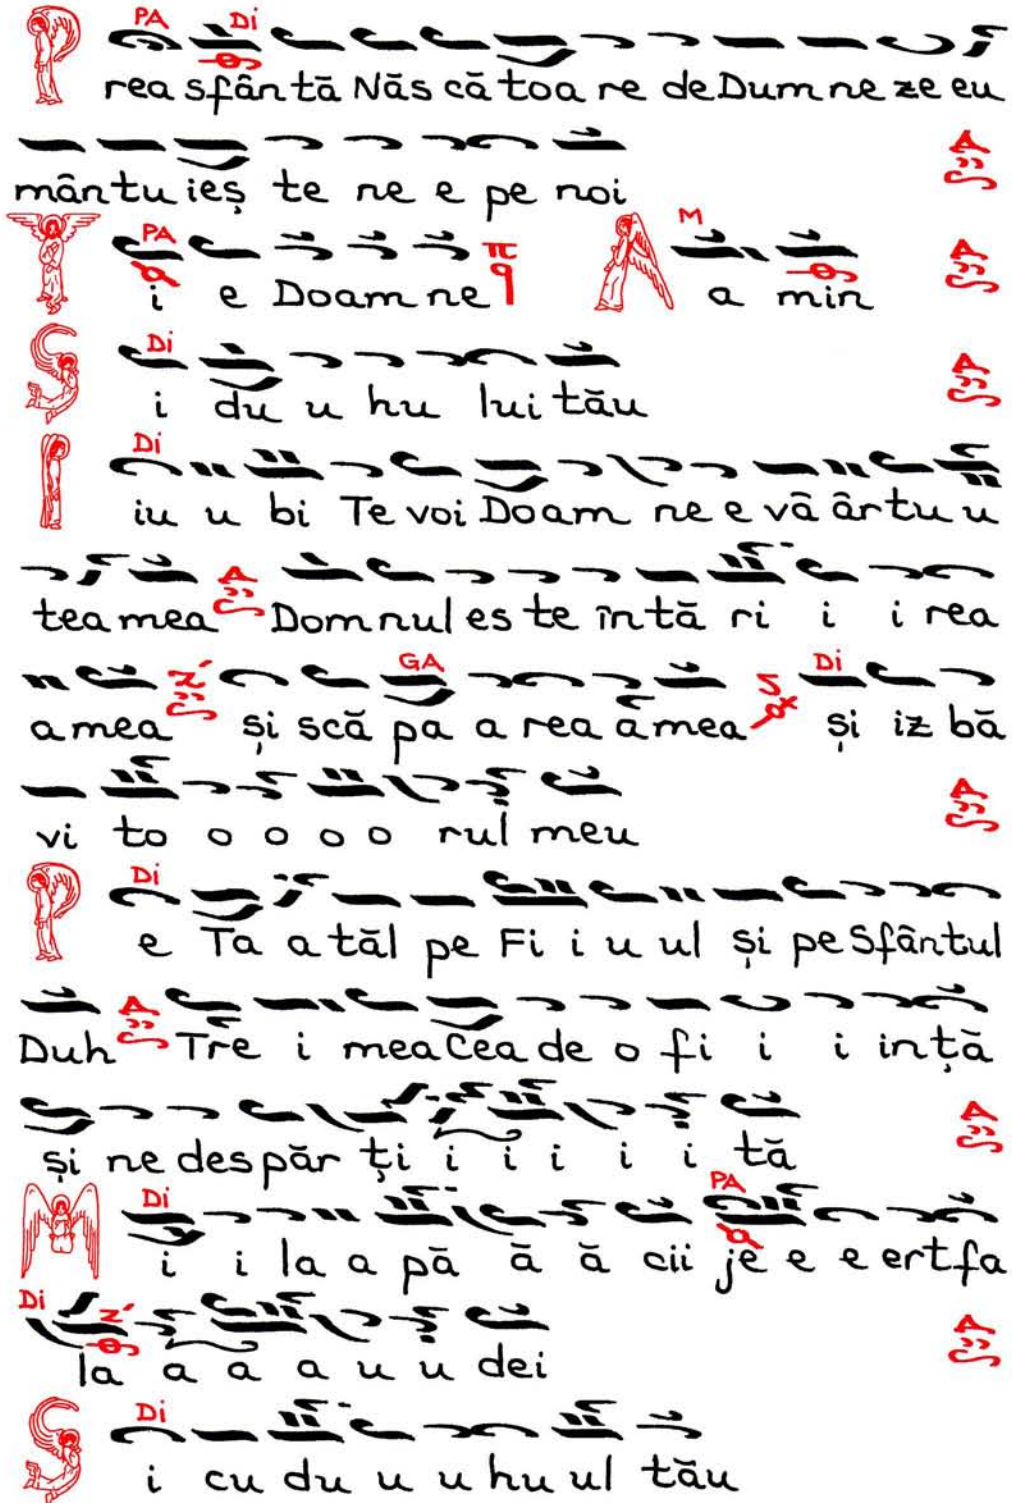 PA Di
P rea sfân tă Năs că toa re de Dum ne ze eu
mân tu ieș te ne e pe noi
PA M
Ț i e Doam ne A a min
Di
Ș i du u hu lui tău
Di
I iu u bi Te voi Doam ne e vâ âr tu u
tea mea Dom nul es te în tă ri i i rea
GA Di
a mea și scă pa a rea a mea și iz bă
vi to o o o o rul meu
Di
P e Ta a tăl pe Fi i u ul și pe Sfân tul
Duh Tre i mea Cea de o fi i i in ță
și ne des păr ți i i i i i tă
Di PA
M i i la a pă ă ă cii je e e ert fa
Di
la a a a u u dei
Di
Ș i cu du u u hu ul tău